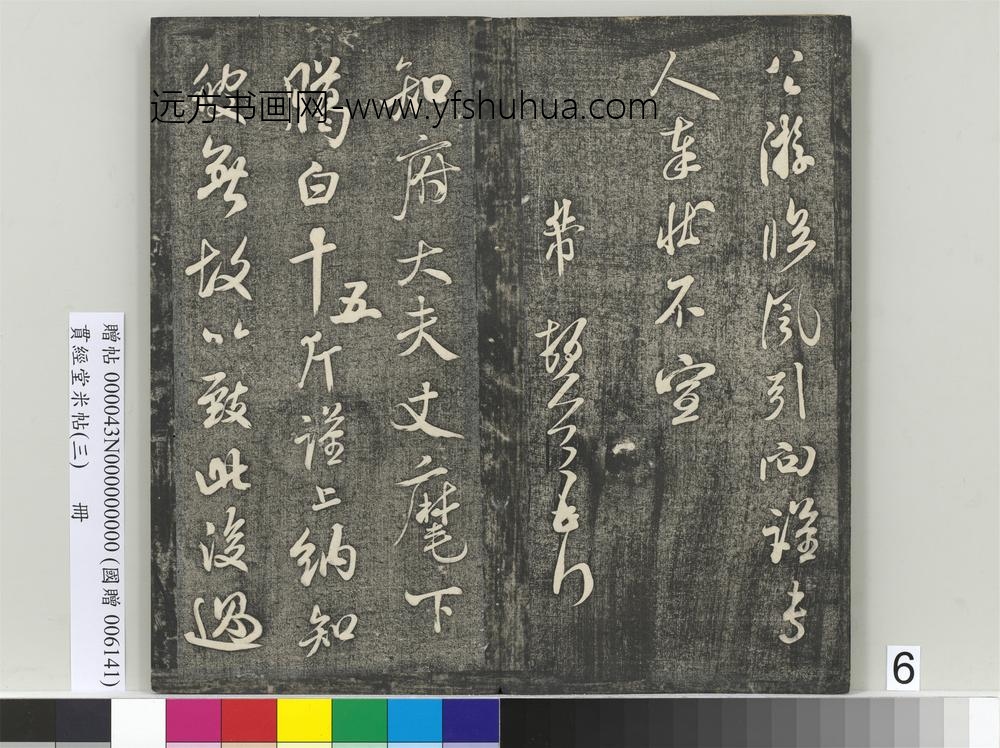 公游臨風引向謹專
人奉狀不宣
芾頓首
知府大夫丈麾下
臈白十五斤謹上納知
無故以致此後過
远方书画网-www.yfshuhua.com
贈帖 000043N000000000 (國贈 006141)
貫經堂米帖(三) 冊
6